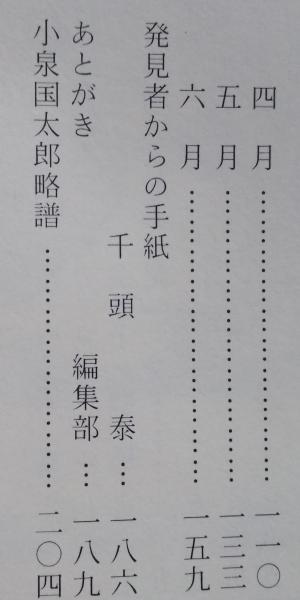 四月……………………………一一〇
五月……………………………一三三
六月……………………………一五九
発見者からの手紙
千頭　泰…一八六
あとがき　編集部…一八九
小泉国太郎略譜……………………二〇四